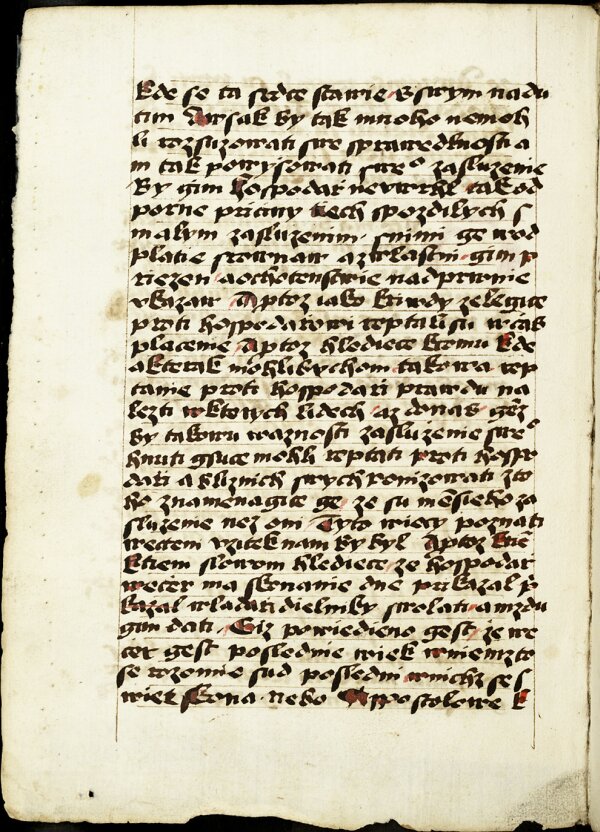 kde se ta srdce stawie s swym nadu
tim A wsak by tak mnoho nemoh
li rozsuzowati swe sprawedlnosti a
ni tak powysowati sweº zasluzenie
by gim hospodar newwrhl tak od
porne priciny tiech spozdilych s
malym zasluzenim s nimi ge w od
platie srownaw a zwlastni gim p
riezen a ochotenstwie nadprwnie
vkazaw A protoz iako kriwdy zelegice
proti hospodarowi reptali su w czas
placenie A protoz hlediece k tomu kde
a kterak mohli bychom takowa rep
tanie proti hospodari prawdu na
lezti w ktorych lidech az do nas gez
by takowu waznosti zasluzenie sweº
hnuti gsuce mohli reptati proti hospo
dari a bliznich swych ponizowati z to
ho znamenagice ge ze su mensieho za
sluzenie nez oni Tyto wiecy poznati
wectem vzitek nam by byl A protoz
ktiem slowom hlediece ze hospodar
wecer ma skonanie dne prikazal p
kazal wladari dielniky swolati a mzdu
gim dati Giz powiedieno gest ze we
cer gest poslednie wiek w niemz to
se rozomie sud posledni w nichz se s
wiet skona nebo Appostolowe k